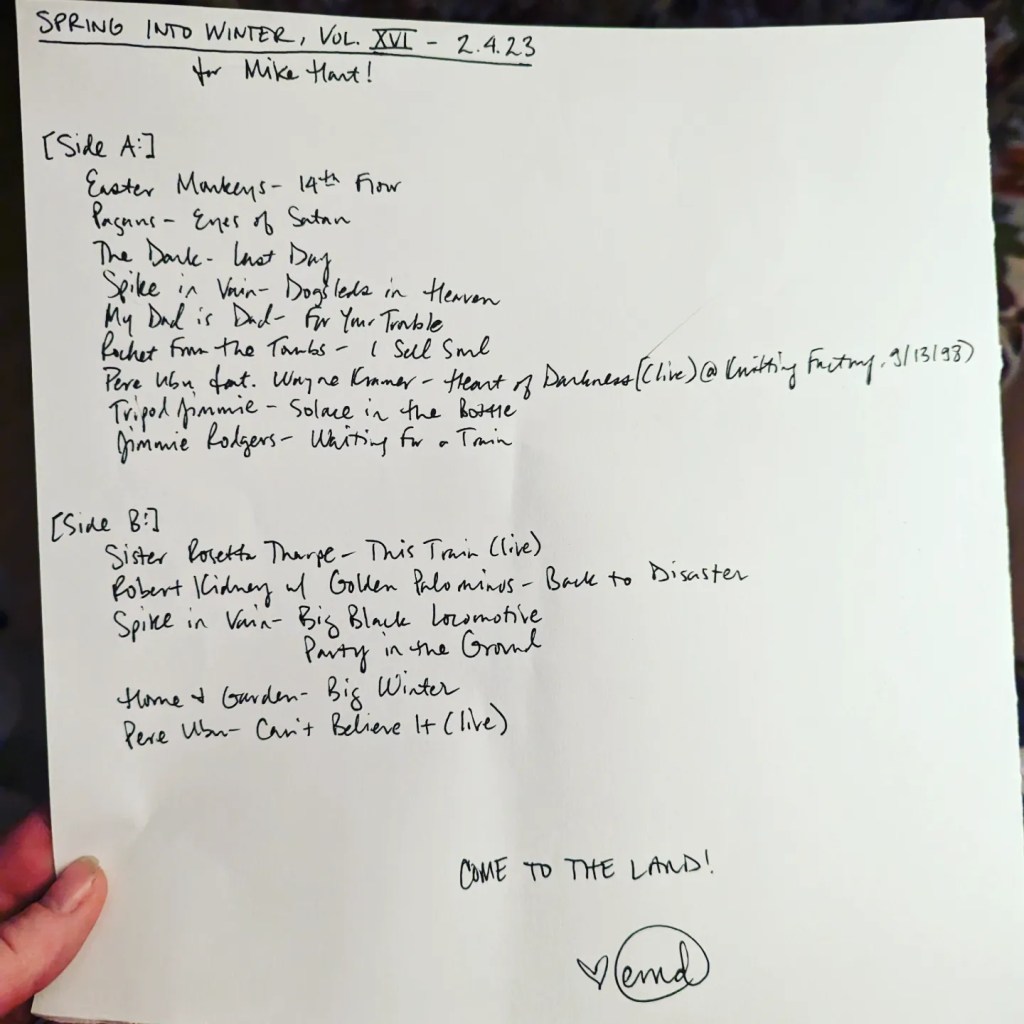 SPRING INTO WINTER, VOL. XVI - 2.4.23
for Mike Hart!
[Side A:]
Easter Monkeys - 14th Floor
Pagans - Eyes of Satan
The Dark - Last Day
Spike in Vain - Dogsleds in Heaven
My Dad is Dad - For Your Trouble
Rocket From the Tombs - I Sell Soul
Pere Ubu feat. Wayne Kramer - Heart of Darkness (live) @ Knitting Factory, 9/13/98)
Tripod Jimmie - Solace in the Bottle
Jimmie Rodgers - Waiting For a Train
[Side B:]
Sister Rosetta Tharpe - This Train (live)
Robert Kidney w/ Golden Palominos - Back to Disaster
Spike in Vain - Big Black Locomotive
Party in the Ground
Home & Garden - Big Winter
Pere Ubu - Can't Believe It (live)
COME TO THE LAND!
♡ emd